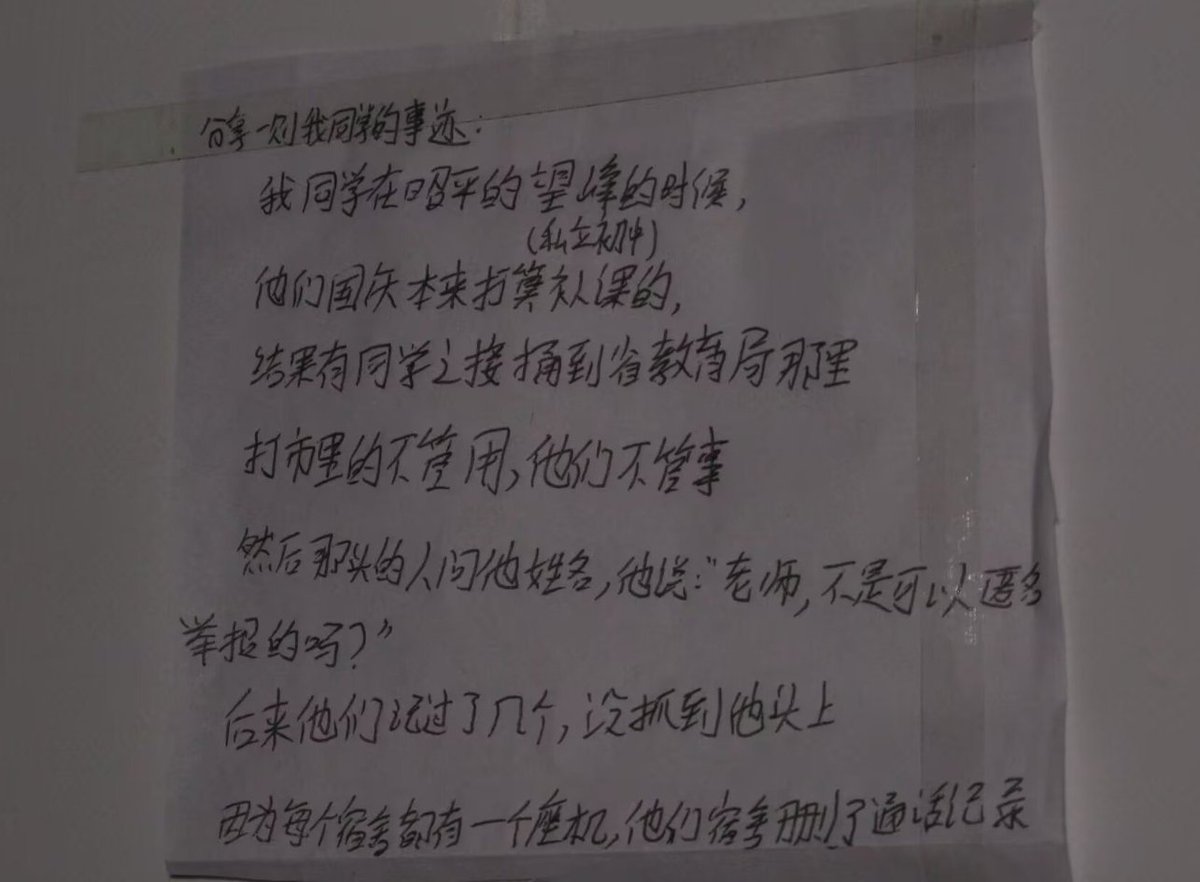 分享一则我同学的事迹:
我同学在昭平的望峰的时候,
(私立初中)
他们国庆本来打算补课的,
结果有同学之接捅到省教育局那里
打市里的不管用,他们不管事
然后那头的人问他姓名,他说:“老师,不是可以匿名
举报的吗?”
后来他们记过了几个,没抓到他头上
因为每个宿舍都有一个座机,他们宿舍删了通话记录